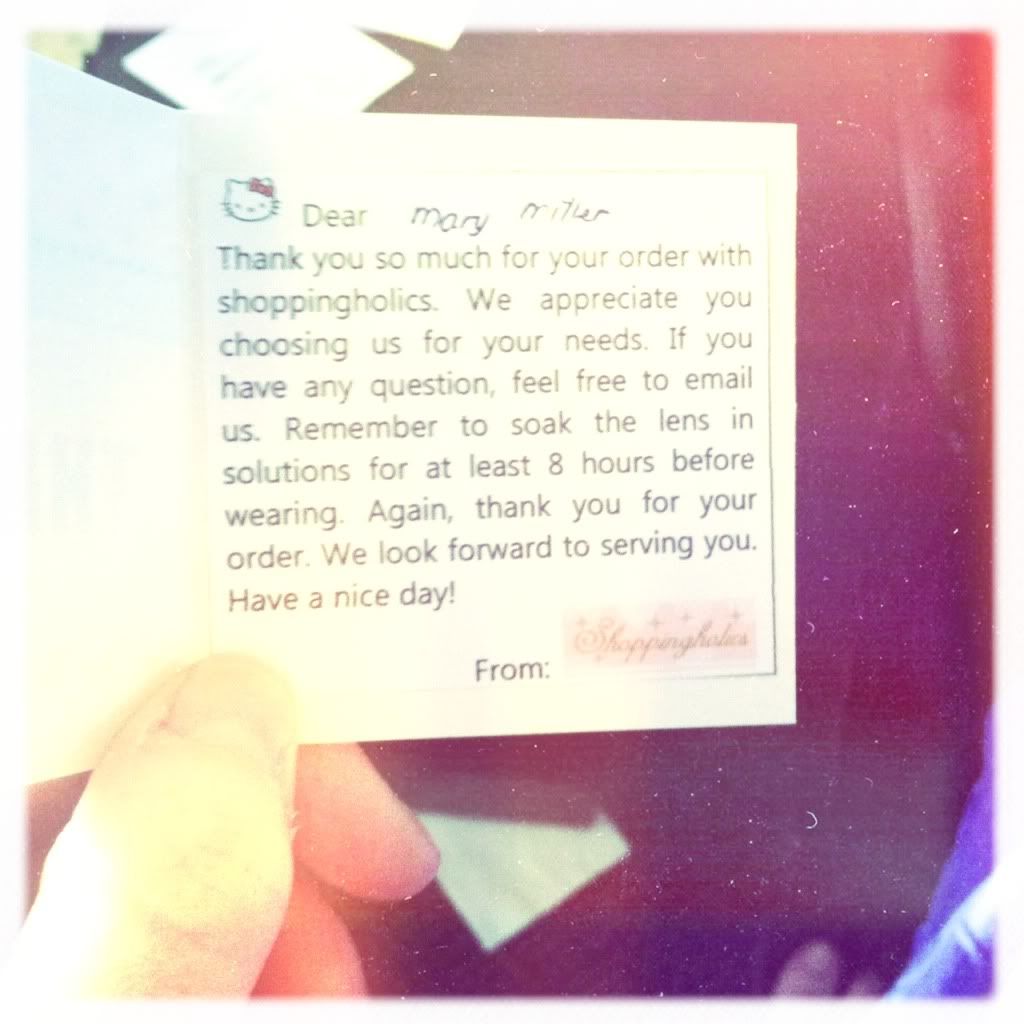 Dear mary miller
Thank you so much for your order with
shoppingholics. We appreciate you
choosing us for your needs. If you
have any question, feel free to email
us. Remember to soak the lens in
solutions for at least 8 hours before
wearing. Again, thank you for your
order. We look forward to serving you.
Have a nice day!
From: Shoppingholics